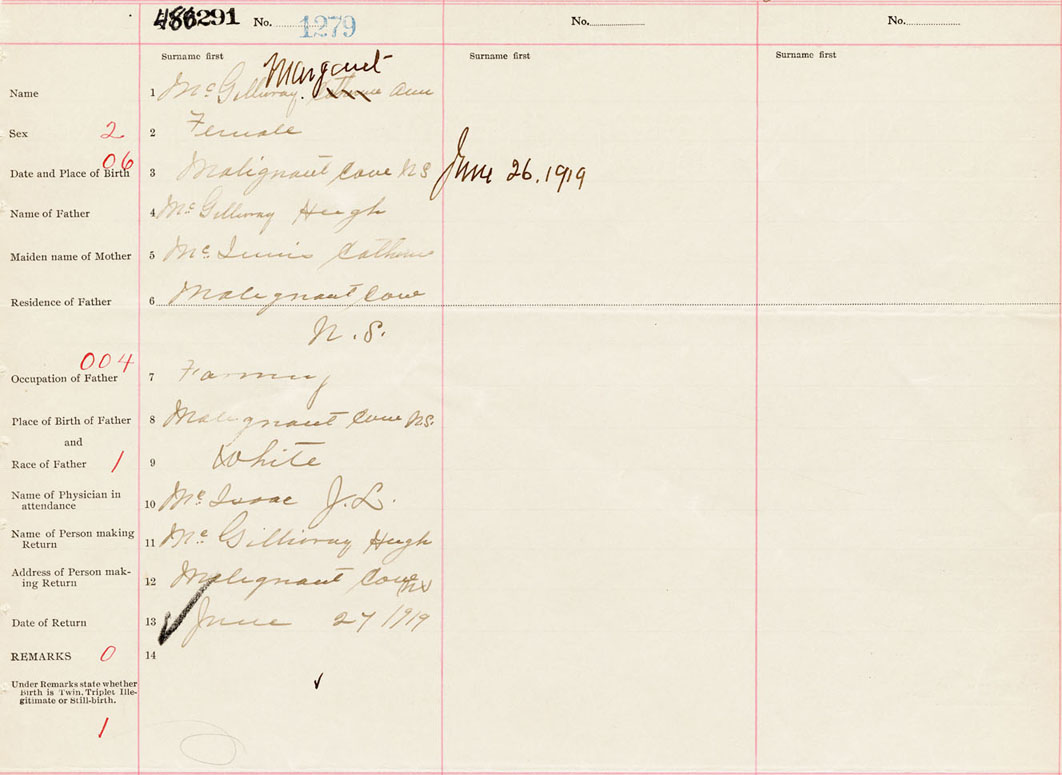 291 No. 1279 No. No.
Surname first Surname first Surname first
Margaret
Name 1 McGillivray Catherine Ann
Sex 2 2 Female
06
Date and Place of Birth 3 Malignant Cove NS June 26. 1919
Name of Father 4 McGillivray Hugh
Maiden name of Mother 5 Mc
Residence of Father 6 Malignant Cove
N.S.
004
Occupation of Father 7 Farming
Place of Birth of Father 8 Malignant Cove N.S.
and
Race of Father 1 9 White
Name of Physician in
attendance 10 McIsaac J. L.
Name of Person making
Return 11 McGillivray Hugh
Address of Person mak-
ing Return 12 Malignant Cove NS
Date of Return 13 June 27 1919
REMARKS 0 14
Under Remarks state whether
Birth is Twin, Triplet Ille-
gitimate or Still-birth.
1